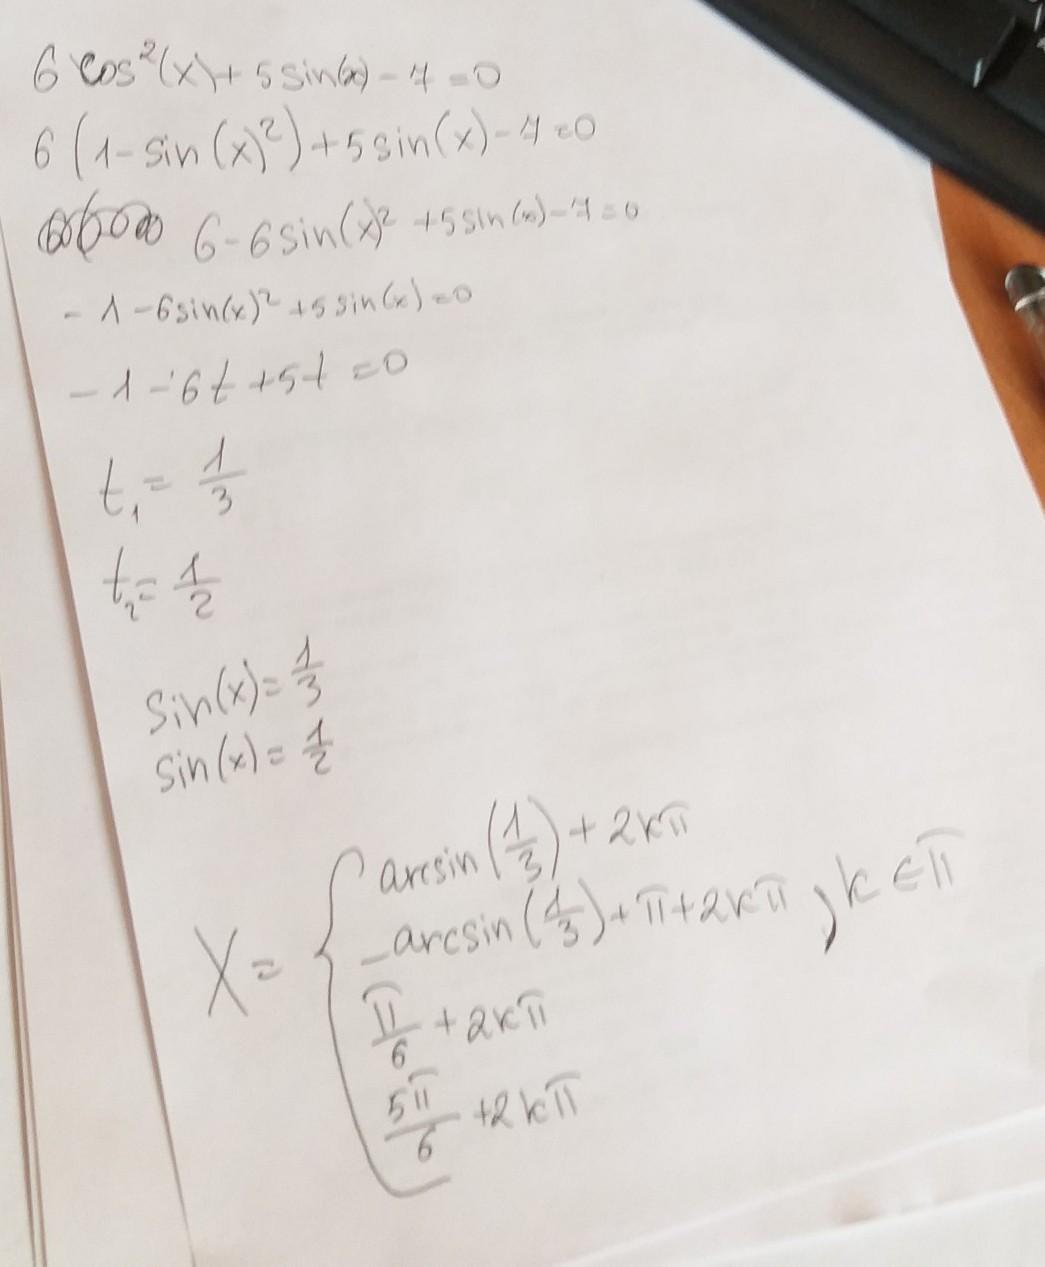 6 cos²(x) + 5 sin(x) - 7 = 0
6 (1 - sin(x)²) + 5 sin(x) - 7 = 0
6 - 6 sin(x)² + 5 sin(x) - 7 = 0
- 1 - 6 sin(x)² + 5 sin(x) = 0
- 1 - 6t + 5t = 0
t₁ = 1/3
t₂ = 1/2
sin(x) = 1/3
sin(x) = 1/2
X = { arcsin(1/3) + 2kπ
-arcsin(1/3) + π + 2kπ , k ∈ π
π/6 + 2kπ
5π/6 + 2kπ